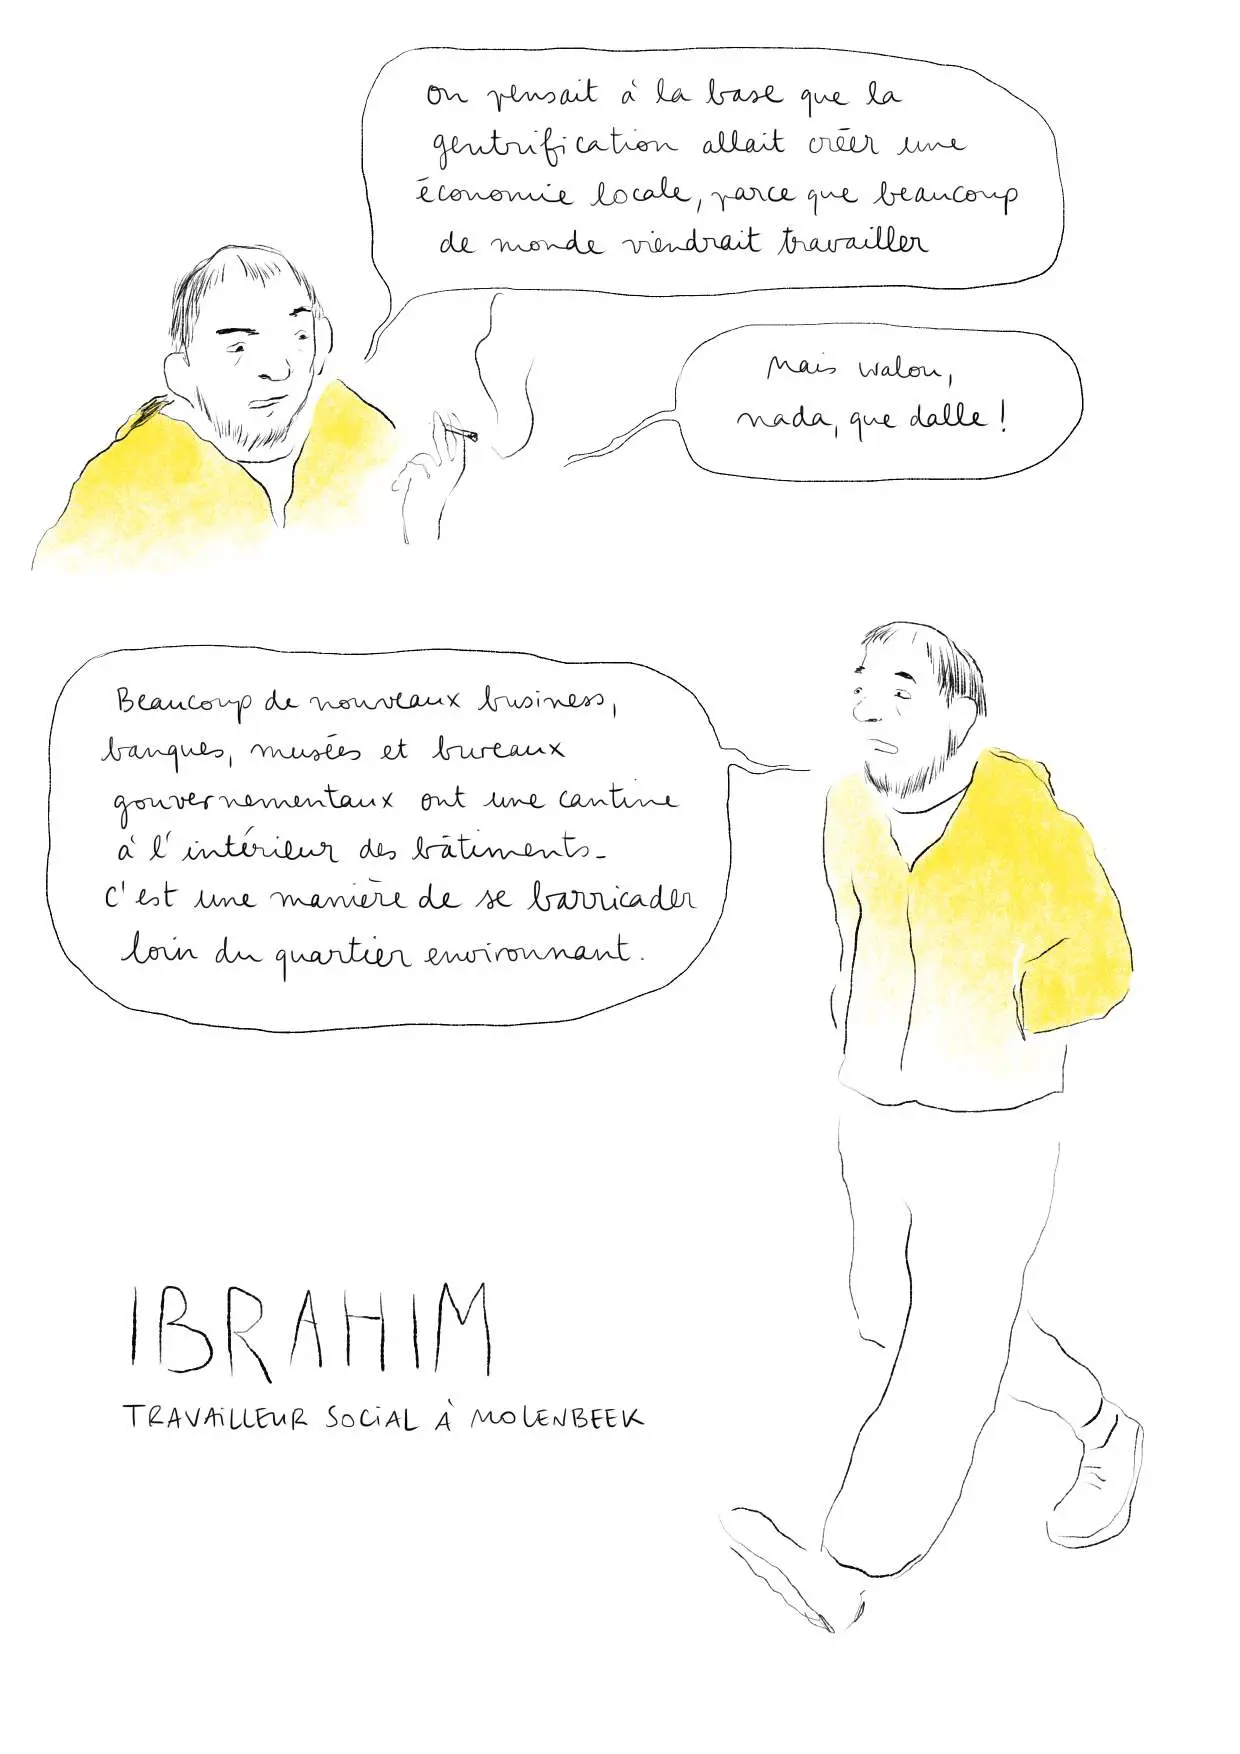 On pensait à la base que la
gentrification allait créer une
économie locale, parce que beaucoup
de monde viendrait travailler
Mais walou,
nada, que dalle !
Beaucoup de nouveaux business,
banques, musées et bureaux
gouvernementaux ont une cantine
à l'intérieur des bâtiments_
C'est une manière de se barricader
loin du quartier environnant.
IBRAHIM
TRAVAILLEUR SOCIAL À MOLENBEEK